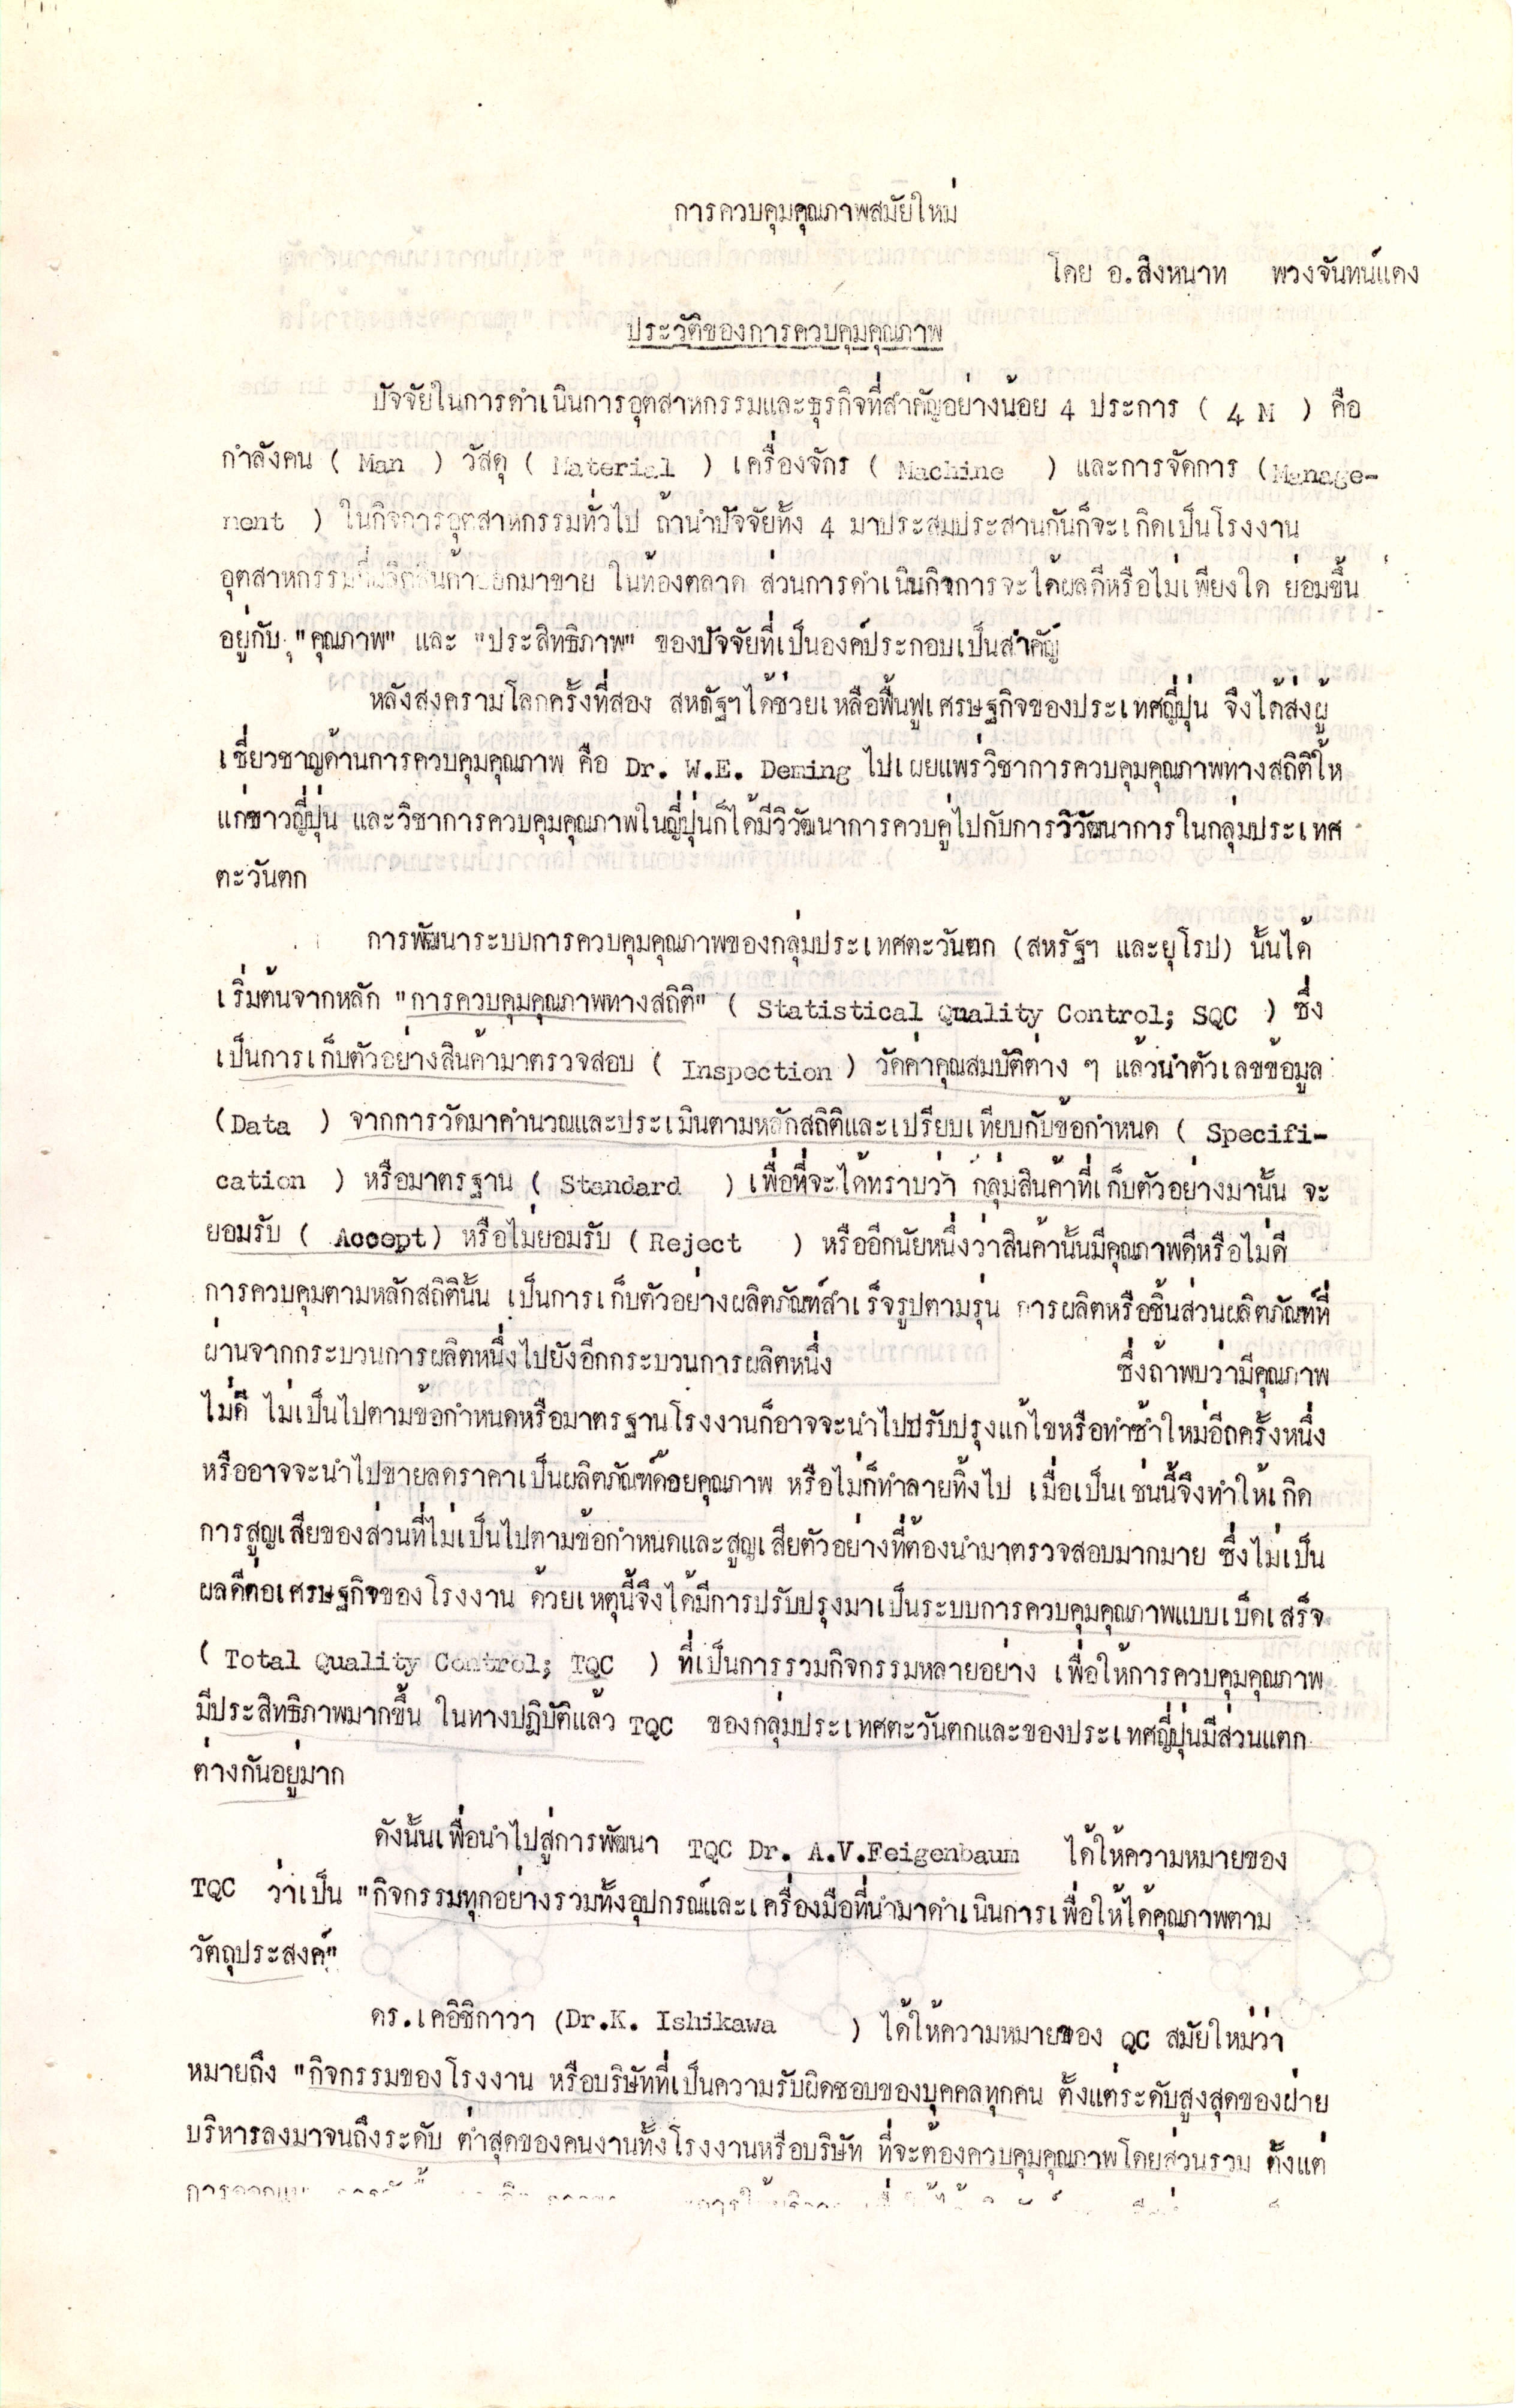 การควบคุมคุณภาพสมัยใหม่
โดย อ.สิงหนาท พวงจันทน์แดง
ประวัติของการควบคุมคุณภาพ
ปัจจัยในการดำเนินการอุตสาหกรรมและธุรกิจที่สำคัญอย่างน้อย 4 ประการ ( 4 M ) คือ
กำลังคน ( Man ) วัสดุ ( Material ) เครื่องจักร ( Machine ) และการจัดการ (Manage-
ment ) ในกิจการอุตสาหกรรมทั่วไป ถ้านำปัจจัยทั้ง 4 มาประสมประสานกันก็จะเกิดเป็นโรงงาน
อุตสาหกรรมที่ผลิตสินค้าออกมาขาย ในท้องตลาด ส่วนการดำเนินกิจการจะได้ผลดีหรือไม่เพียงใด ย่อมขึ้น
อยู่กับ "คุณภาพ" และ "ประสิทธิภาพ" ของปัจจัยที่เป็นองค์ประกอบเป็นสำคัญ
หลังสงครามโลกครั้งที่สอง สหรัฐฯได้ช่วยเหลือฟื้นฟูเศรษฐกิจของประเทศญี่ปุ่น จึงได้ส่งผู้
เชี่ยวชาญด้านการควบคุมคุณภาพ คือ Dr. W.E. Deming ไปเผยแพร่วิชาการควบคุมคุณภาพทางสถิติให้
แก่ชาวญี่ปุ่น และวิชาการควบคุมคุณภาพในญี่ปุ่นก็ได้มีวิวัฒนาการควบคู่ไปกับการวิวัฒนาการในกลุ่มประเทศ
ตะวันตก
การพัฒนาระบบการควบคุมคุณภาพของกลุ่มประเทศตะวันตก (สหรัฐฯ และยุโรป) นั้นได้
เริ่มต้นจากหลัก "การควบคุมคุณภาพทางสถิติ" ( Statistical Quality Control; SQC ) ซึ่ง
เป็นการเก็บตัวอย่างสินค้ามาตรวจสอบ ( Inspection ) วัดค่าคุณสมบัติต่าง ๆ แล้วนำตัวเลขข้อมูล
(Data ) จากการวัดมาคำนวณและประเมินตามหลักสถิติและเปรียบเทียบกับข้อกำหนด ( Specifi-
cation ) หรือมาตรฐาน ( Standard ) เพื่อที่จะได้ทราบว่า กลุ่มสินค้าที่เก็บตัวอย่างมานั้น จะ
ยอมรับ ( Accept) หรือไม่ยอมรับ (Reject ) หรืออีกนัยหนึ่งว่าสินค้านั้นมีคุณภาพดีหรือไม่ดี
การควบคุมตามหลักสถิตินั้น เป็นการเก็บตัวอย่างผลิตภัณฑ์สำเร็จรูปตามรุ่น การผลิตหรือชิ้นส่วนผลิตภัณฑ์ที่
ผ่านจากกระบวนการผลิตหนึ่งไปยังอีกกระบวนการผลิตหนึ่ง ซึ่งถ้าพบว่ามีคุณภาพ
ไม่ดี ไม่เป็นไปตามข้อกำหนดหรือมาตรฐานโรงงานก็อาจจะนำไปปรับปรุงแก้ไขหรือทำซ้ำใหม่อีกครั้งหนึ่ง
หรืออาจจะนำไปขายลดราคาเป็นผลิตภัณฑ์ด้อยคุณภาพ หรือไม่ก็ทำลายทิ้งไป เมื่อเป็นเช่นนี้จึงทำให้เกิด
การสูญเสียของส่วนที่ไม่เป็นไปตามข้อกำหนดและสูญเสียตัวอย่างที่ต้องนำมาตรวจสอบมากมาย ซึ่งไม่เป็น
ผลดีต่อเศรษฐกิจของโรงงาน ด้วยเหตุนี้จึงได้มีการปรับปรุงมาเป็นระบบการควบคุมคุณภาพแบบเบ็ดเสร็จ
( Total Quality Control; TQC ) ที่เป็นการรวมกิจกรรมหลายอย่าง เพื่อให้การควบคุมคุณภาพ
มีประสิทธิภาพมากขึ้น ในทางปฏิบัติแล้ว TQC ของกลุ่มประเทศตะวันตกและของประเทศญี่ปุ่นมีส่วนแตก
ต่างกันอยู่มาก
ดังนั้นเพื่อนำไปสู่การพัฒนา TQC Dr. A.V.Feigenbaum ได้ให้ความหมายของ
TQC ว่าเป็น "กิจกรรมทุกอย่างรวมทั้งอุปกรณ์และเครื่องมือที่นำมาดำเนินการเพื่อให้ได้คุณภาพตาม
วัตถุประสงค์"
ดร.เคอิชิกาวา (Dr.K. Ishikawa ) ได้ให้ความหมายของ QC สมัยใหม่ว่า
หมายถึง "กิจกรรมของโรงงาน หรือบริษัทที่เป็นความรับผิดชอบของบุคคลทุกคน ตั้งแต่ระดับสูงสุดของฝ่าย
บริหารลงมาจนถึงระดับ ต่ำสุดของคนงานทั้งโรงงานหรือบริษัท ที่จะต้องควบคุมคุณภาพโดยส่วนรวม ตั้งแต่